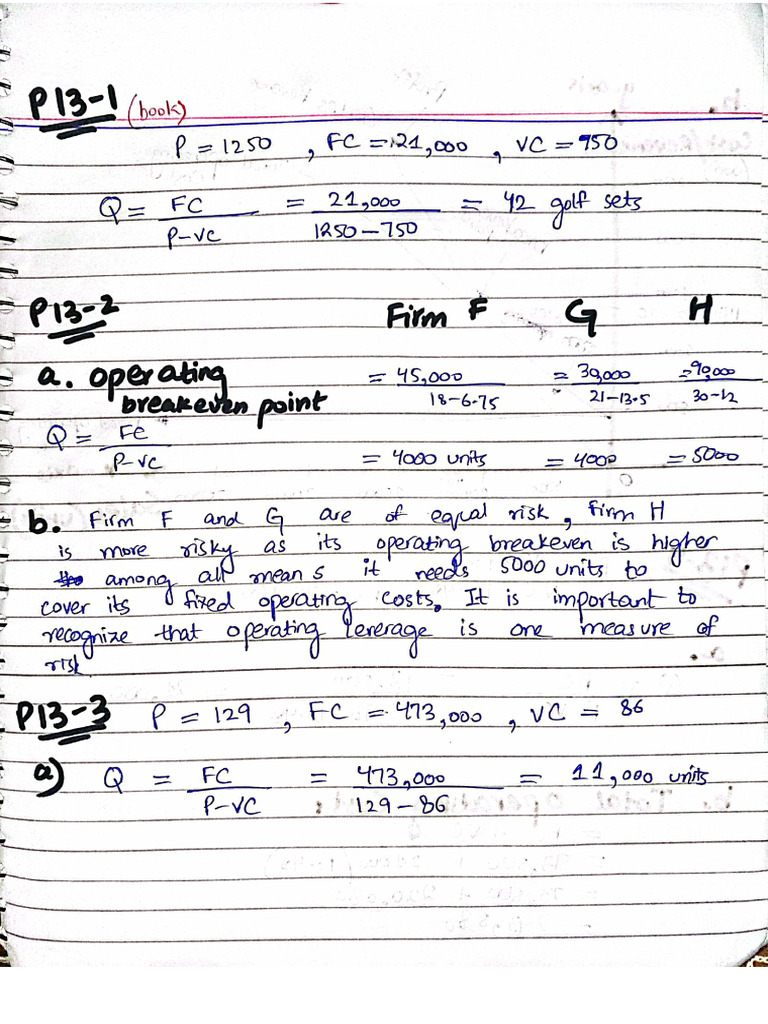 P13-1 (book)
P = 1250 , FC = 21,000 , VC = 750
Q = FC / P-VC = 21,000 / 1250-750 = 42 golf sets
P13-2 Firm F G H
a. operating breakeven point = 45,000 / 18-6.75 = 30,000 / 21-13.5 = 90,000 / 30-12
Q = FC / P-VC = 4000 units = 4000 = 5000
b. Firm F and G are of equal risk, firm H
is more risky as its operating breakeven is higher
among all means it needs 5000 units to
cover its fixed operating costs. It is important to
recognize that operating leverage is one measure of
risk
P13-3 P = 129 , FC = 473,000 , VC = 86
a) Q = FC / P-VC = 473,000 / 129-86 = 11,000 units